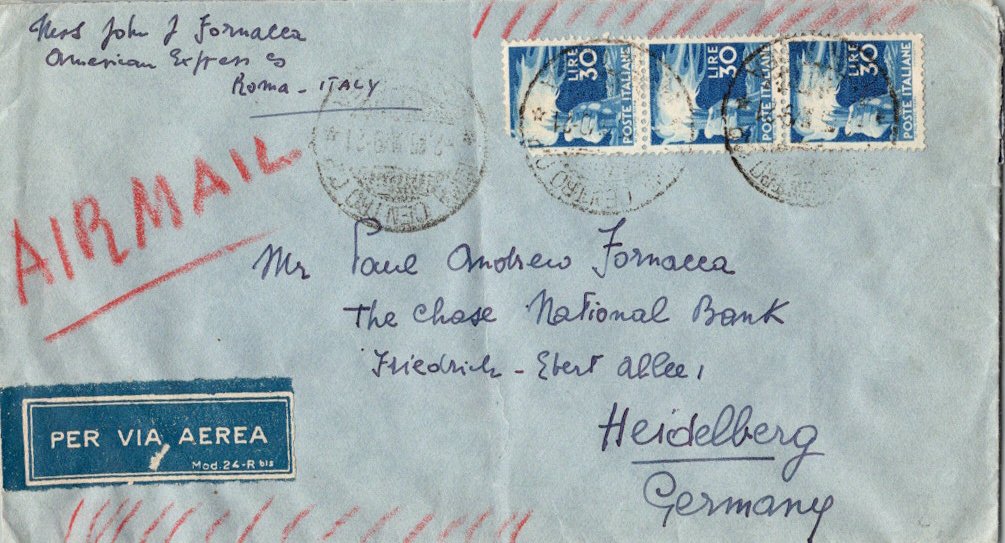 Mrs John J Fornacca
American Express Co
Roma - ITALY
LIRE 30
POSTE ITALIANE
LIRE 30
POSTE ITALIANE
LIRE 30
POSTE ITALIANE
CENTRO
CENTRO
CENTRO
AIRMAIL
Mr Paul Andrew Fornacca
The Chase National Bank
Friedrich - Ebert Allee,
Heidelberg
Germany
PER VIA AEREA
Mod. 24-R bis